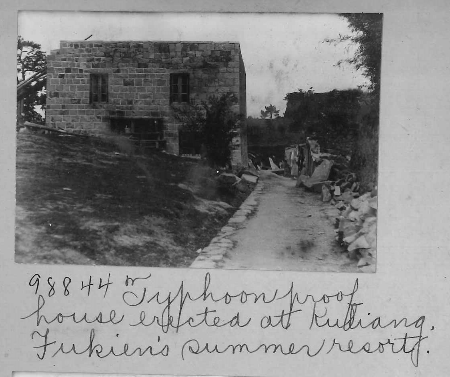 98844 Typhoon proof
house erected at Kuliang,
Fukien's summer resort.